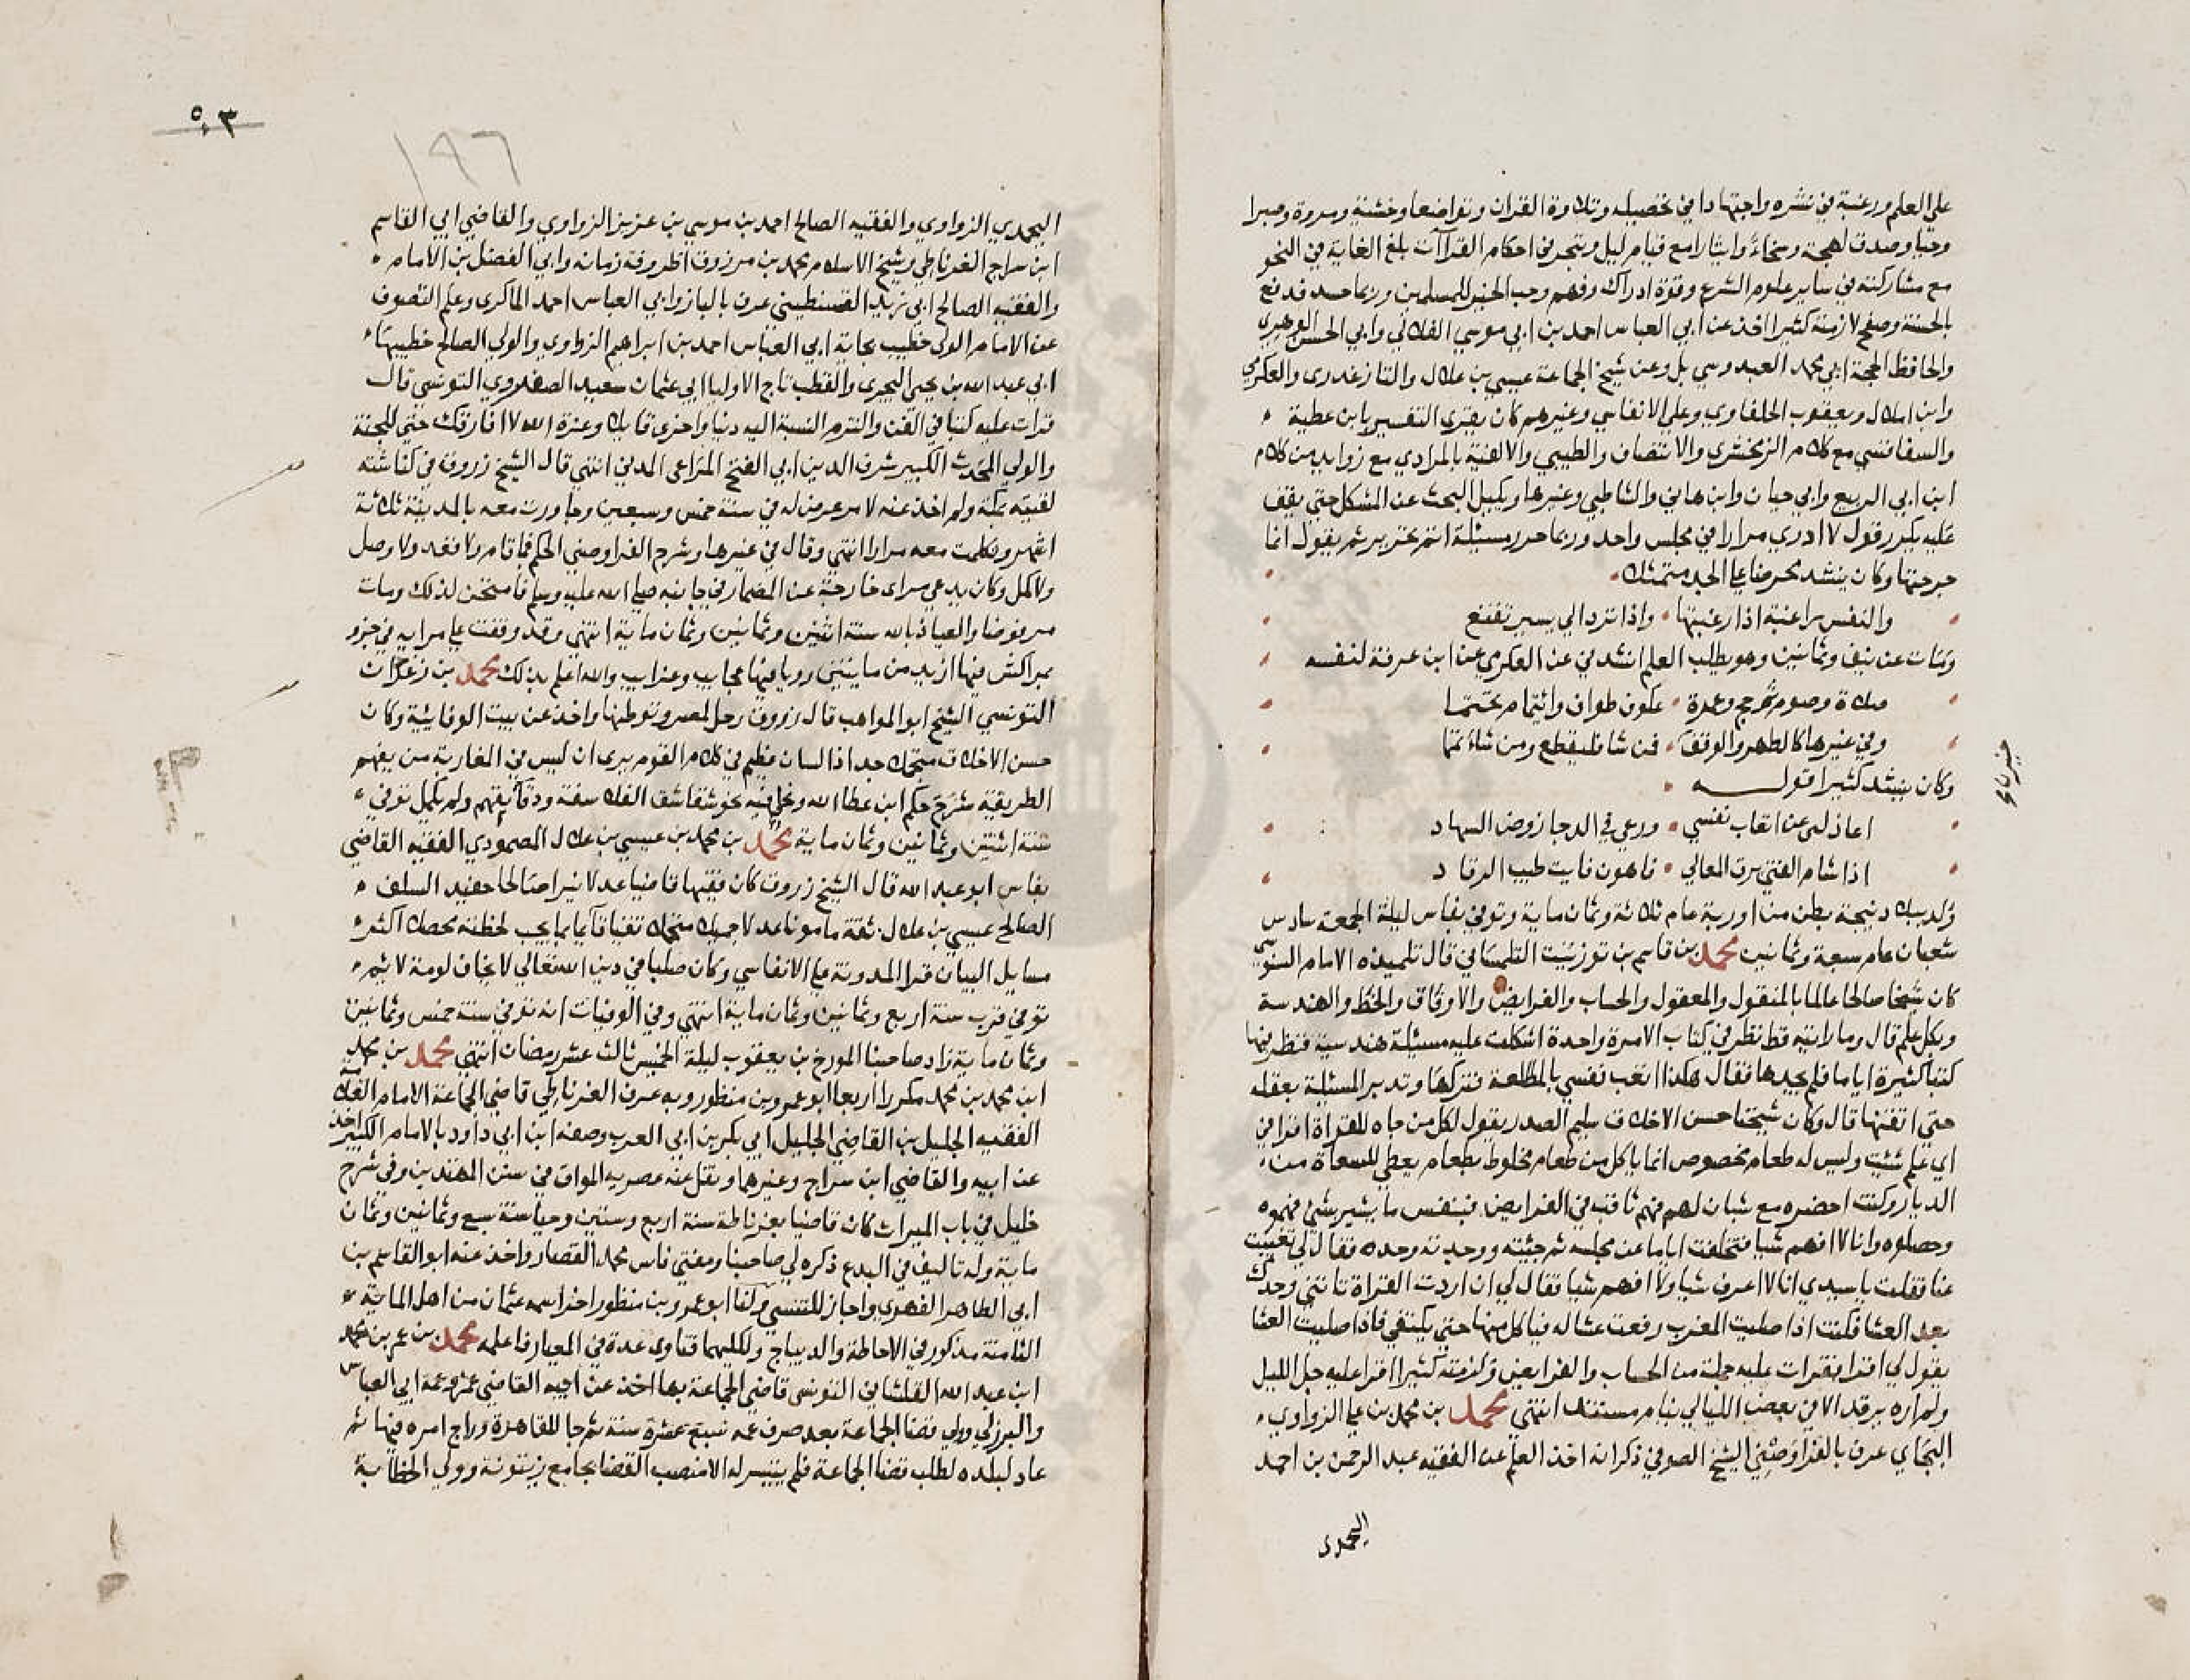 على العلم ورغبة في نشره واجتهادا في تحصيله وتلاوة القران وتواضعا وخشية ومروة وصبرا
وحيا وصدق لهجة وسخاء وايثارا مع قيام ليل وتبحر في احكام القراآت بلغ الغاية في النحو
مع مشاركته في ساير علوم الشرع وقوة ادراك وفهم وحب الخير للمسلمين وربما حسد فدفع
بالحسنة وصفح لازمته كثيرا اخذ عن ابي العباس احمد بن ابي موسي الفلالي وابي الحسن الوهري
والحافظ الحجة ابي محمد العبدوسي بل وعن شيخ الجماعة عيسي بن علال والتازغدري والعكرمي
وابن املال ويعقوب الحلفاوي وعلي الانفاسي وغيرهم كان يقرئ التفسير بابن عطية
والسفاقسي مع كلام الزمخشري والانتصاف والطيبي والالفية بالمرادي مع زوايد من كلام
ابن ابي الربيع وابي حيان وابن هاني والشاطبي وغيرها ويكمل البحث عن المشكل حتى يقف
عليه يكرر قول لا ادري مرارا في مجلس واحد وربما حرر مسئلة اتم تحرير ثم يقول انما
حرجتها وكان ينشد محرضا على الجد متمثلا
والنفس راغبة اذا رغبتها واذا ترد الي يسير تقنع
ومات عن نيف وثمانين وهو يطلب العلم انشدني عن العكرمي عن ابن عرفة لنفسه
صلاة وصوم ثم حج وعمرة عكوف طواف وائتمام تحتما
وفي غيرها كالطهر والوقف فمن شا فليقطع ومن شاء تمما
وكان ينشد كثيرا قولـــه
اعاذلتي عن اتعاب نفسي ورعي في الدجا روض السهاد
اذا شام الفتي برق المعالي فاهون فايت طيب الرقاد
ولد ببلاد نيجة بطن من اوربة عام ثلاثة وثمان ماية وتوفي بفاس ليلة الجمعة سادس
شعبان عام سبعة وثمانين محمد بن قاسم بن توزينت التلمساني قال تلميذه الامام السنوسي
كان شيخا صالحا عالما بالمنقول والمعقول والحساب والفرايض والاوفاق والخط والهندسة
وبكل علم قال وما رايته قط نظر في كتاب الا مرة واحدة اشكلت عليه مسئلة هندسية فنظر فيها
كتبا كثيرة اياما فلم يجدها فقال هكذا اتعب نفسي بالمطالعة فتركها وتدبر المسئلة بعقله
حتى اتقنها قال وكان شيخنا حسن الاخلاق سليم الصدر يقول لكل من جاه للقراة اقرا في
اي علم شئت وليس له طعام مخصوص انما ياكل من طعام مخلوط بطعام يعطي للسعاة من
الديار وكنت احضره مع شبان لهم فهم ثاقب في الفرايض فبنفس ما يشير بشئ فهموه
وحصلوه وانا لا افهم شيا فتخلفت اياما عن مجلسه ثم جئته ووجدته وحده فقال لي تغيبت
عنا فقلت يا سيدي انا لا اعرف شيا ولا افهم شيا فقال لي ان اردت القراة تاتني وحدك
بعد العشا فكنت اذا صليت المغرب رفعت عشا له فياكل منها حتى يكتفي فاذا صليت العشا
يقول لي اقرا فقرات عليه جملة من الحساب والفرايض ولزمته كثيرا اقرا عليه جل الليل
ولم اره يرقد الا في بعض الليالي ينام مستندا انتهي محمد بن محمد بن علي الزواوي
البجاي عرف بالفراوصني الشيخ الصوفي ذكر انه اخذ العلم عن الفقيه عبد الرحمن بن احمد
اليحمدي
٥٠٣
١٩٦
اليحمدي الزواوي والفقيه الصالح احمد بن موسي بن عزيز الزواوي والقاضي ابي القاسم
ابن سراج الغرناطي وشيخ الاسلام محمد بن مرزوق اظروفة زمانه وابي الفضل بن الامام
والفقيه الصالح ابي زيد القسنطيني عرف بالباز وابي العباس احمد الماكري وعلم التصوف
عن الامام الولي خطيب بجاية ابي العباس احمد بن ابراهيم الزواوي والولي الصالح خطيبها
ابي عبد الله بن يحيى اليحيري والقطب تاج الاوليا ابي عثمان سعيد الصفدروي التونسي قال
قرات عليه كتبا في الفن والتزم النسبة اليه دنيا واخرى قايلا وعزة الله لا افارقك حتي للجنة
والولي المحدث الكبير شرف الدين ابي الفتح المراغي المدني انتهي قال الشيخ زروق في كناشته
لقيته بمكة ولم اخذ عنه لامر عرض له في سنة خمس وسبعين وجاورت معه بالمدينة ثلاثة
اشهر وتكلمت معه مرارا انتهي وقال في غيرها وشرح الفراوصني الحكم فما قام ولا قعد ولا وصل
ولا كمل وكان يدعي مراي خارجة عن المضمار في جانبه صلى الله عليه وسلم فامتحن لذلك ومات
مرفوضا والعياذ بالله سنة اثنين وثمانين وثمان ماية انتهي وقد وقفت على مرايه في جزو
بمراكش فيها ازيد من مايتين رويا فيها عجايب وغرايب والله اعلم بذلك محمد بن زغدان
التونسي الشيخ ابو المواهب قال زروق رحل لمصر وتوطنها واخذ عن بيت الوفائية وكان
حسن الاخلاق متجملا جدا ذا لسان عظيم في كلام القوم يرى ان ليس في المغاربة من يفهم
الطريقة شرح حكم ابن عطا الله ونحى فيه نحو شقاشق الفلاسفة ودقايقهم ولم يكمل توفي
سنة اثنتين وثمانين وثمان ماية محمد بن محمد بن عيسي بن علال المصمودي الفقيه القاضي
بفاس ابو عبد الله قال الشيخ زروق كان فقيها قاضيا عدلا خيرا صالحا حفيد السلف
الصالح عيسي بن علال ثقة مامونا عدلا جميلا متجملا تقيا قآيما بما يجب لحظته محصلا اكثر
مسايل البيان قرا المدونة على الانفاسي وكان صلبا في دين الله تعالي لا يخاف لومة لايم
توفي قرب سنة اربع وثمانين وثمان ماية انتهي وفي الوفيات انه توفي سنة خمس وثمانين
وثمان ماية زاد صاحبنا المورخ بن يعقوب ليلة الخميس ثالث عشر رمضان انتهي محمد بن محمد
ابن محمد بن محمد مكررا اربعا ابو عمرو بن منظور وبه عرف الغرناطي قاضي الجماعة الامام العلامة
الفقيه الجليل بن القاضي الجليل ابي بكر بن ابي العرب وصفه ابن ابي داود بالامام الكبير اخذ
عن ابيه والقاضي ابن سراج وغيرهما ونقل عنه عصريه المواق في سنن المهتدين وفي شرح
خليل في باب الميراث كان قاضيا بغرناطة سنة اربع وستين وحيا سنة سبع وثمانين وثمان
ماية وله تاليف في البدع ذكره لي صاحبنا ومفتي فاس محمد القصار واخذ عنه ابو القاسم بن
ابي الطاهر الفهري واجاز للتنسي مولفا ابو عمرو بن منظور اخر اسمه عثمان من اهل الماية
الثامنة مذكور في الاحاطة والديباج ولكليهما فتاوى عدة في المعيار فاعلمه محمد بن عمر بن محمد
ابن عبد الله القلشاني التونسي قاضي الجماعة بها اخذ عن ابيه القاضي عمر وعمه ابي العباس
والبرزلي وولي قضا الجماعة بعد صرف عمه سبع عشرة سنة ثم جا للقاهرة وراج امره فيها ثم
عاد لبلده لطلب قضا الجماعة فلم يتيسر له الا منصب القضا بجامع زيتونة وولي الخطابة